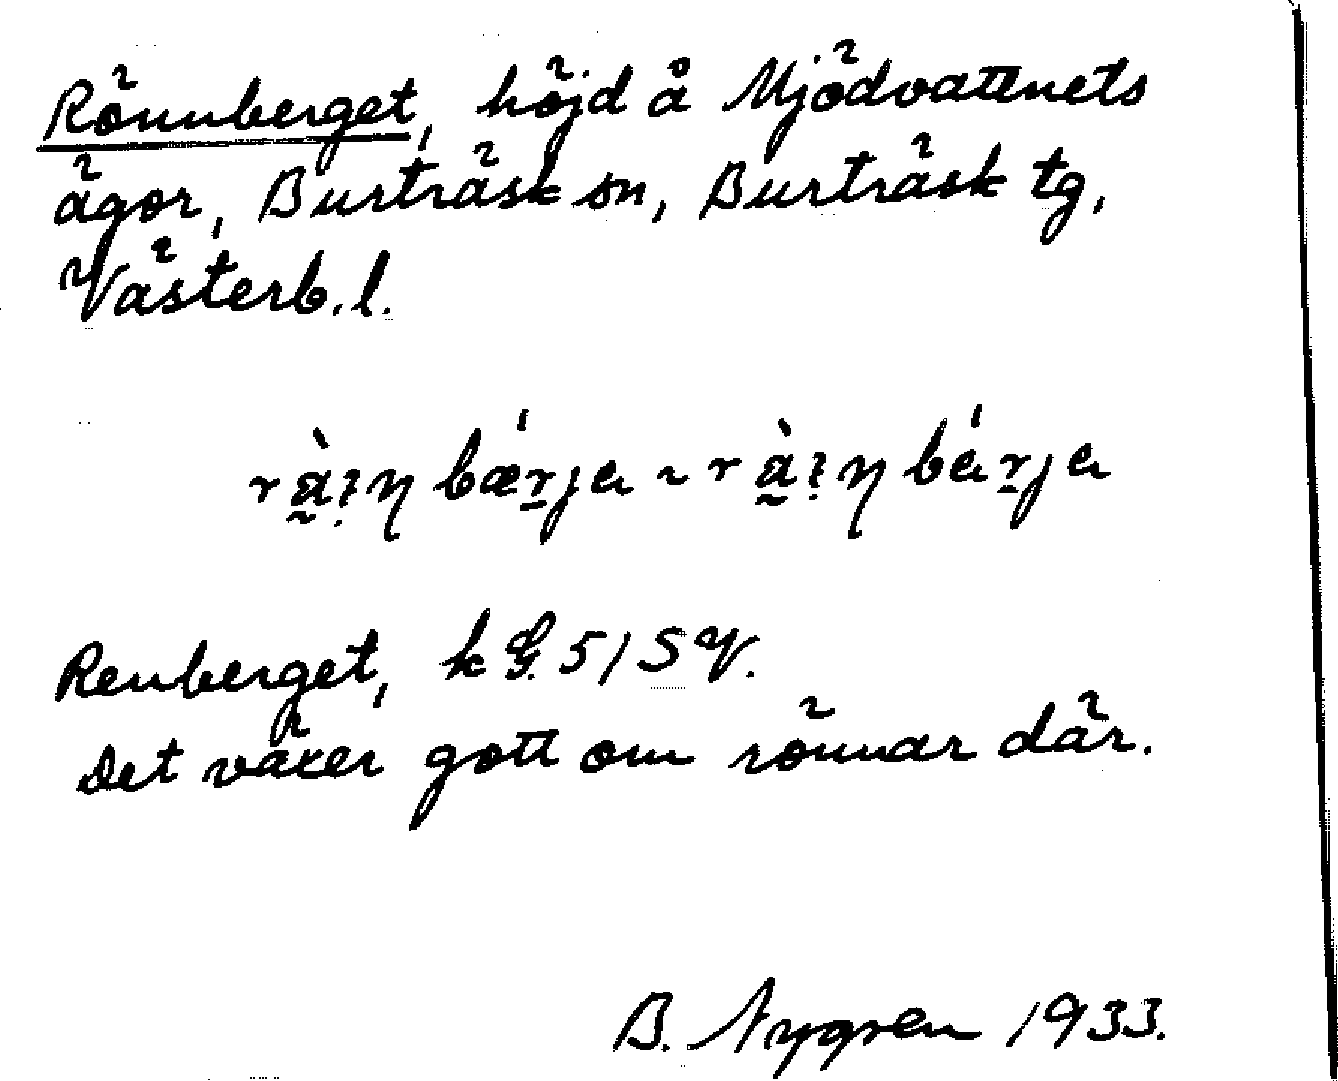 Rönnberget, höjd å Mjödvattnets
ägor, Burträsk sn, Burträsk tg,
Västerb. l.
Renberget, k G. 51 S V.
Det växer gott om rönnar där.
B. Nygren 1933.